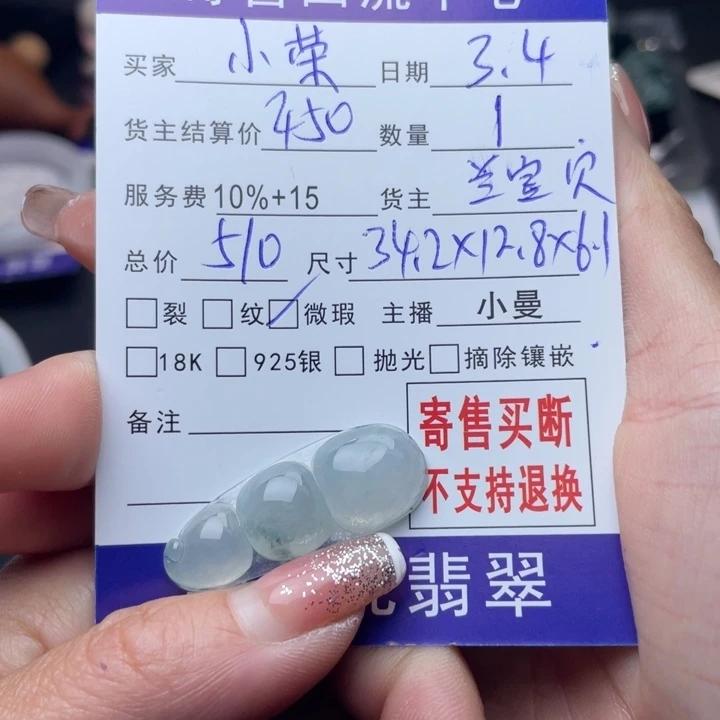 买家 小荣 日期 3.4
货主结算价 450 数量 1
服务费 10%+15 货主 兰宝贝
总价 510 尺寸 34.2x12.8x6.1
裂 纹 微瑕 主播 小曼
18K 925银 抛光 摘除镶嵌
备注
寄售买断
不支持退换
翡翠